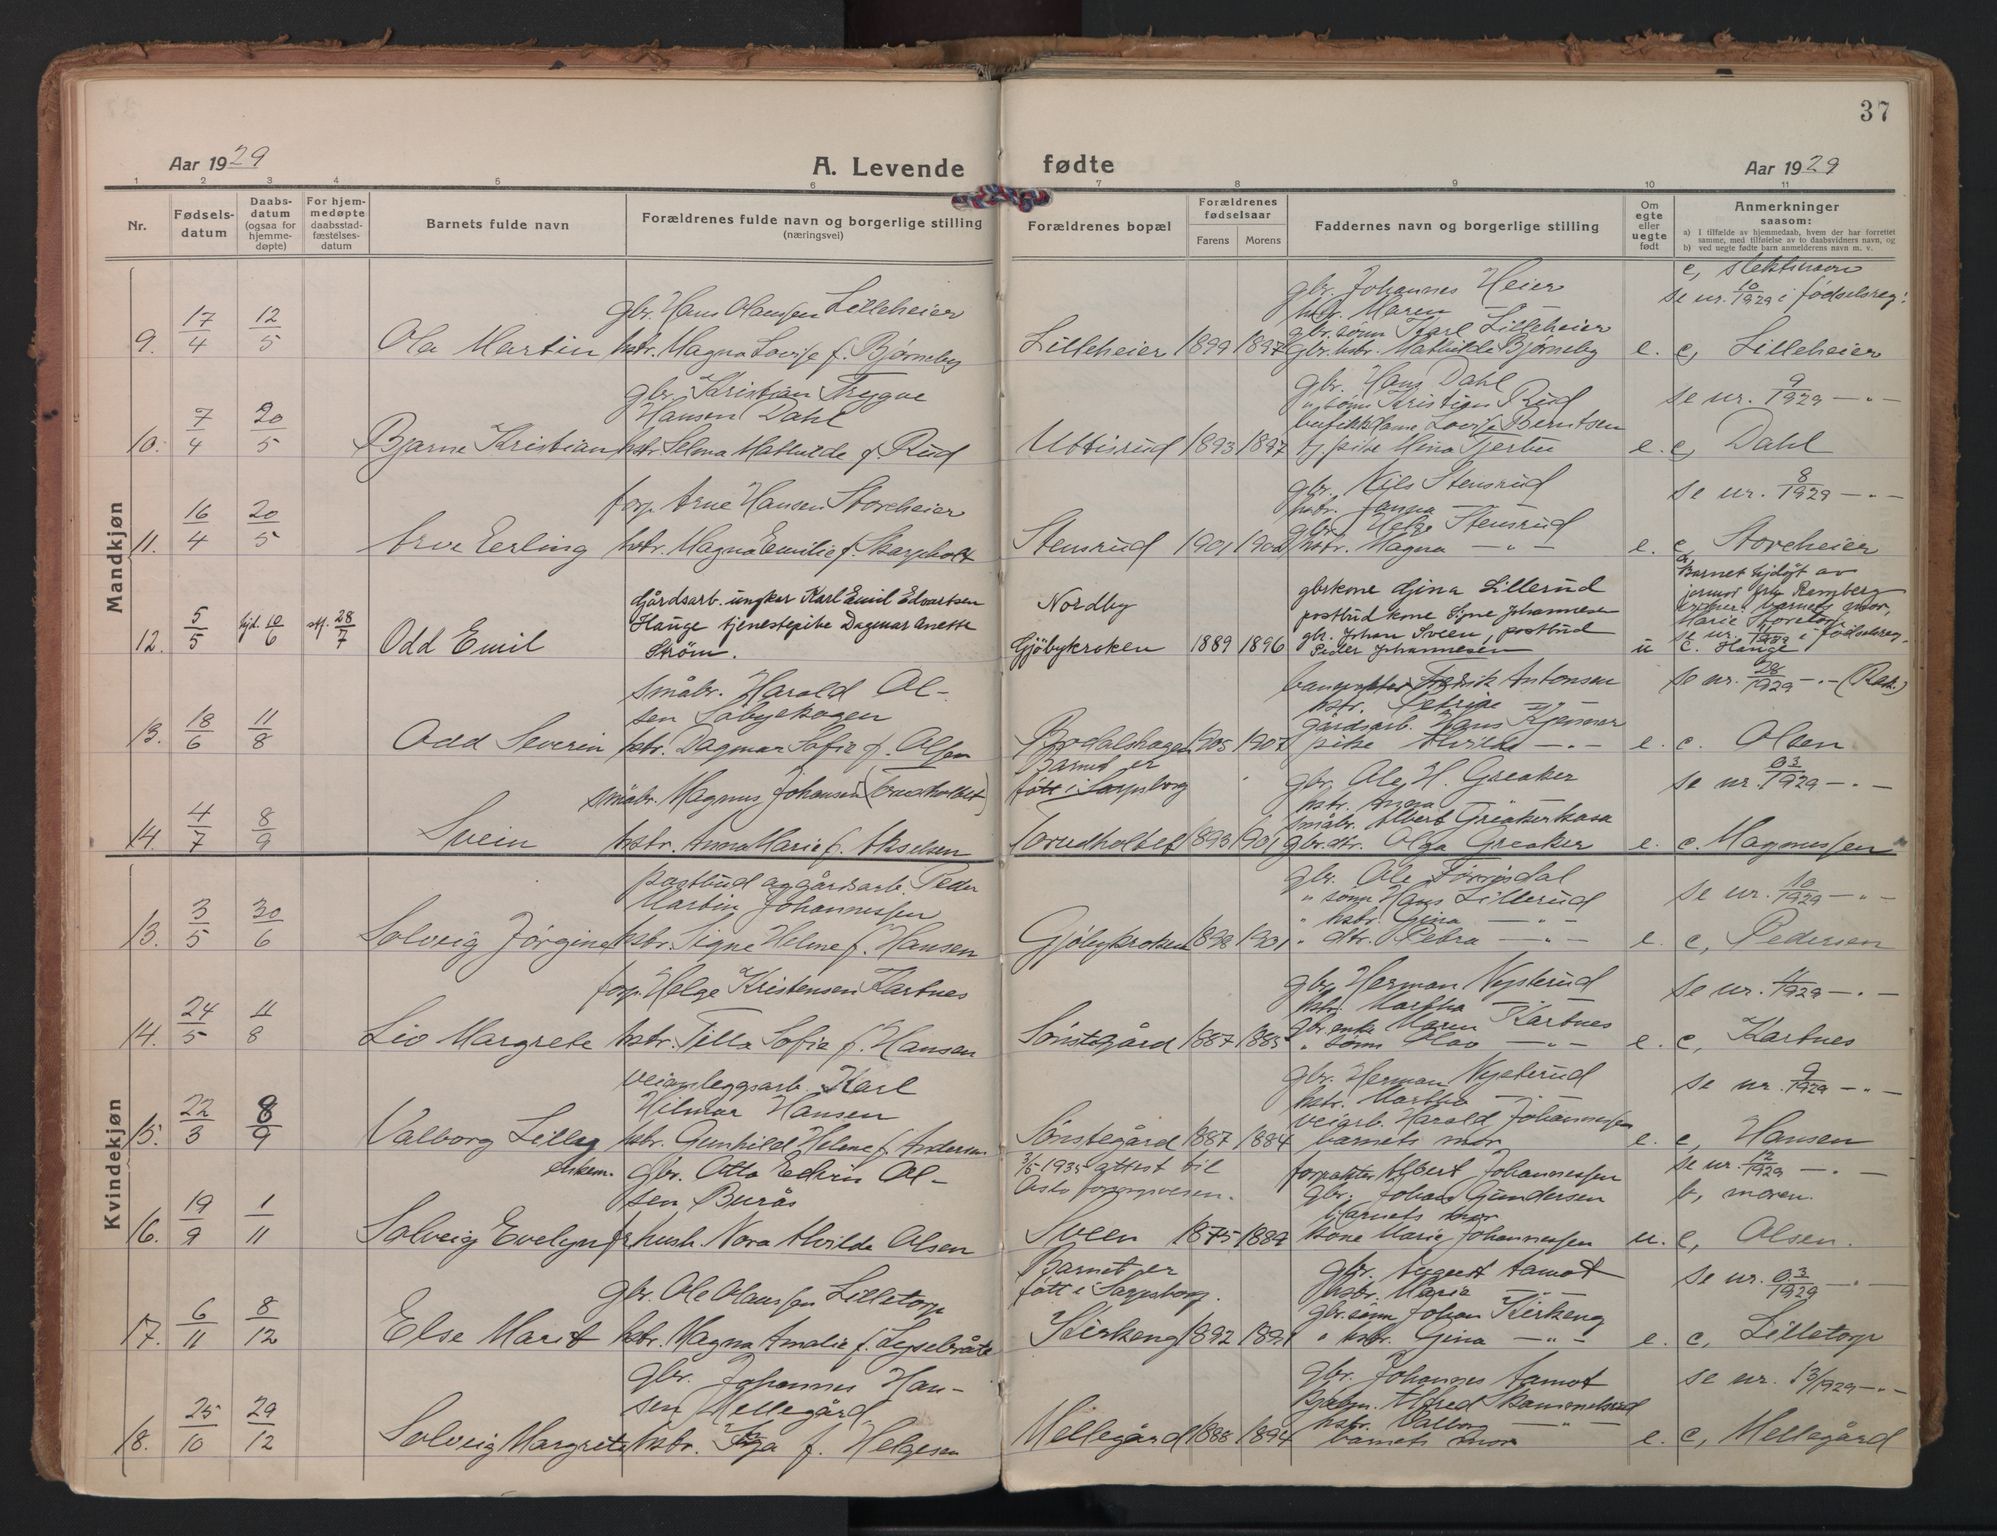 37
Aar 1929
A. Levende fødte
Aar 1929
1 2 3 4 5 6 7 8 9 10 11
Nr.
Fødsels-
datum
Daabs-
datum
(ogsaa for
hjemme-
døpte)
For hjem-
medøpte
daabsstad-
fæstelses-
datum
Barnets fulde navn
Forældrenes fulde navn og borgerlige stilling
(næringsvei)
Forældrenes bopæl
Forældrenes
fødselsaar
Farens Morens
Faddernes navn og borgerlige stilling
Om
egte
eller
uegte
født
Anmerkninger
saasom:
a) I tilfælde av hjemmedaab, hvem der har forrettet
samme, med tilføielse av to daabsvidners navn, og
b) ved uegte fødte barn anmelderens navn m. v.
Mandkjøn
9. 17/4 12/5 Ola Martin
gbr. Hans Olaussen Lilleheier
hstr. Magna Lovise f. Bjørneby
Lilleheier 1899 1897
gbr. Johannes Heier
hstr. Maren
gbr. sønn Karl Lilleheier
gbr. hstr. Mathilde Bjørneby
e.
c, slektsnavn
se nr. 10/1929 i fødselsreg:
c, Lilleheier
10. 7/4 20/5 Bjarne Kristian
gbr. Kristian Trygve
Hansen Dahl
hstr. Selma Mathilde f. Rud
Uttisrud 1893 1897
gbr. Hans Dahl
" sønn Kristian Rud
butikkdame Lovise Berntsen
tj. pike Mina
e.
se nr. 9/1929 - " -
c, Dahl
11. 16/4 20/5 Arve Erling
forp. Arne Hansen Storeheier
hstr. Magna Emilie f. Skarpholt
Stensrud 1901 1902
gbr. Nils Stensrud
hstr. Janna
gbr. Helge Stensrud
hstr. Magna - " -
e.
se nr. 8/1929 - " -
c, Storeheier
12. 5/5 hjd. 10/6 st. 28/7 Odd Emil
Gårdsarb. ungkar Karl Emil Edvartsen
Hauge tjenestepike Dagmar Anette
Strøm.
Nordby
Gjøbykroken 1889 1896
gbrkone Gina Lillerud
postbud kone Signe Johannesen
gbr. Johan Sveen, postbud
Peder Johannesen
u
a, Barnet hjdøpt av
jormor frk. Ramberg
barnets mor,
Marie
se nr. i fødselsreg.
c. Hauge
13. 18/6 11/8 Odd Severin
småbr. Harald Ol-
sen
hstr. Dagmar Sofie f. Olsen
1905 1907
Fredrik Antonsen
hstr. Petrine
gårdsarb. Hans
pike Alvilde - " -
e.
se nr. 28/1929 - " - (Rak.)
c. Olsen
14. 4/7 8/9 Svein
småbr. Magnus Johansen
hstr. Anna Marie f. Akselsen
Barnet er
født i Sarpsborg
Torudholtet 1893 1901
gbr. Ole H. Greaker
hstr. Anna
småbr. Albert Greakerkasa
gbr. dtr. Olga Greaker
e.
se nr. 03/1929 - " -
c. Magnussen
Kvindekjøn
13. 3/5 30/6 Solveig Jørgine
postbud og gårdsarb. Peder
Martin Johannessen
hstr. Signe Helene f. Hansen
Gjøbykroken 1898 1901
gbr. Ole
" sønn Hans Lillerud
" hstr. Gina - " -
" dtr. Petra - " -
e.
se nr. 10/1929 - " -
c, Pedersen
14. 24/5 11/8 Liv Margrete
forp. Helge Kristensen Kartnes
hstr. Tilla Sofie f. Hansen
Sønstegård 1887 1885
gbr. Herman Nysterud
hstr. Martha
gbr. enke Maren Kartnes
" sønn Olav - " -
e.
se nr. 11/1929 - " -
c, Kartnes
15. 22/3 8/9 Valborg Lilly
veianleggsarb. Karl
Hilmar Hansen
hstr. Gunhild Helene f. Andersen
Sønstegård 1887 1884
gbr. Herman Nysterud
hstr. Martha
veiarb. Harald Johannessen
barnets mor
e.
se nr. 9/1929 - " -
c, Hansen
16. 19/9 1/11 Solveig Evelyn
gbr. Otto Edvin Ol-
sen Burås
hush. Nora Alvilde Olsen
3/5 1935 attest til
Oslo forsorgsvesen.
Sveen 1875 1887
forpakter Albert Johannessen
gbr. Johan Gundersen
barnets mor
kone Marie Johannessen
u.
se nr. 12/1929 - " -
b, moren.
c, Olsen.
17. 6/11 8/12 Else Marit
gbr. Ole Olaussen Lilletorp
hstr. Magna Amalie f. Lyselbråte
Barnet er
født i Sarpsborg.
Kirkeng 1892 1891
gbr. August Aamot
hstr. Maria
gbr. sønn Johan Kirkeng
" hstr. Gina - " -
e.
se nr. 03/1929 - " -
c, Lilletorp
18. 25/10 29/12 Solveig Margrete
gbr. Johannes Han-
sen Mellegård
hstr. Inga f. Helgesen
Mellegård 1888 1894
gbr. Johannes Aamot
Alfred Skammelsrud
hstr. Valborg - " -
barnets mor
e.
se nr. 13/1929 - " -
c, Mellegård